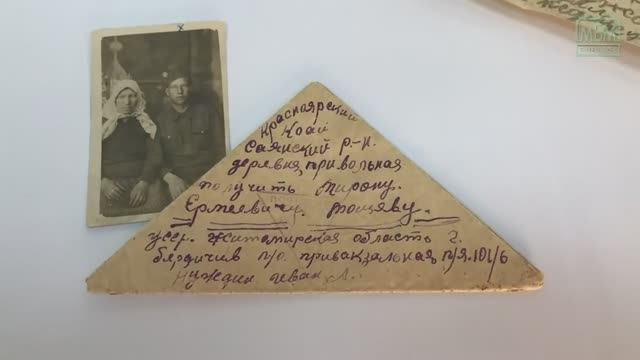 Красноярский
Край
Саянский р-н.
деревня, привольная
получить Мирону.
Ермеевичу. Тощяву.
усср. Житамирская область г.
бердичив п/о. привакзальная п/я. 101/б
Иван Л.